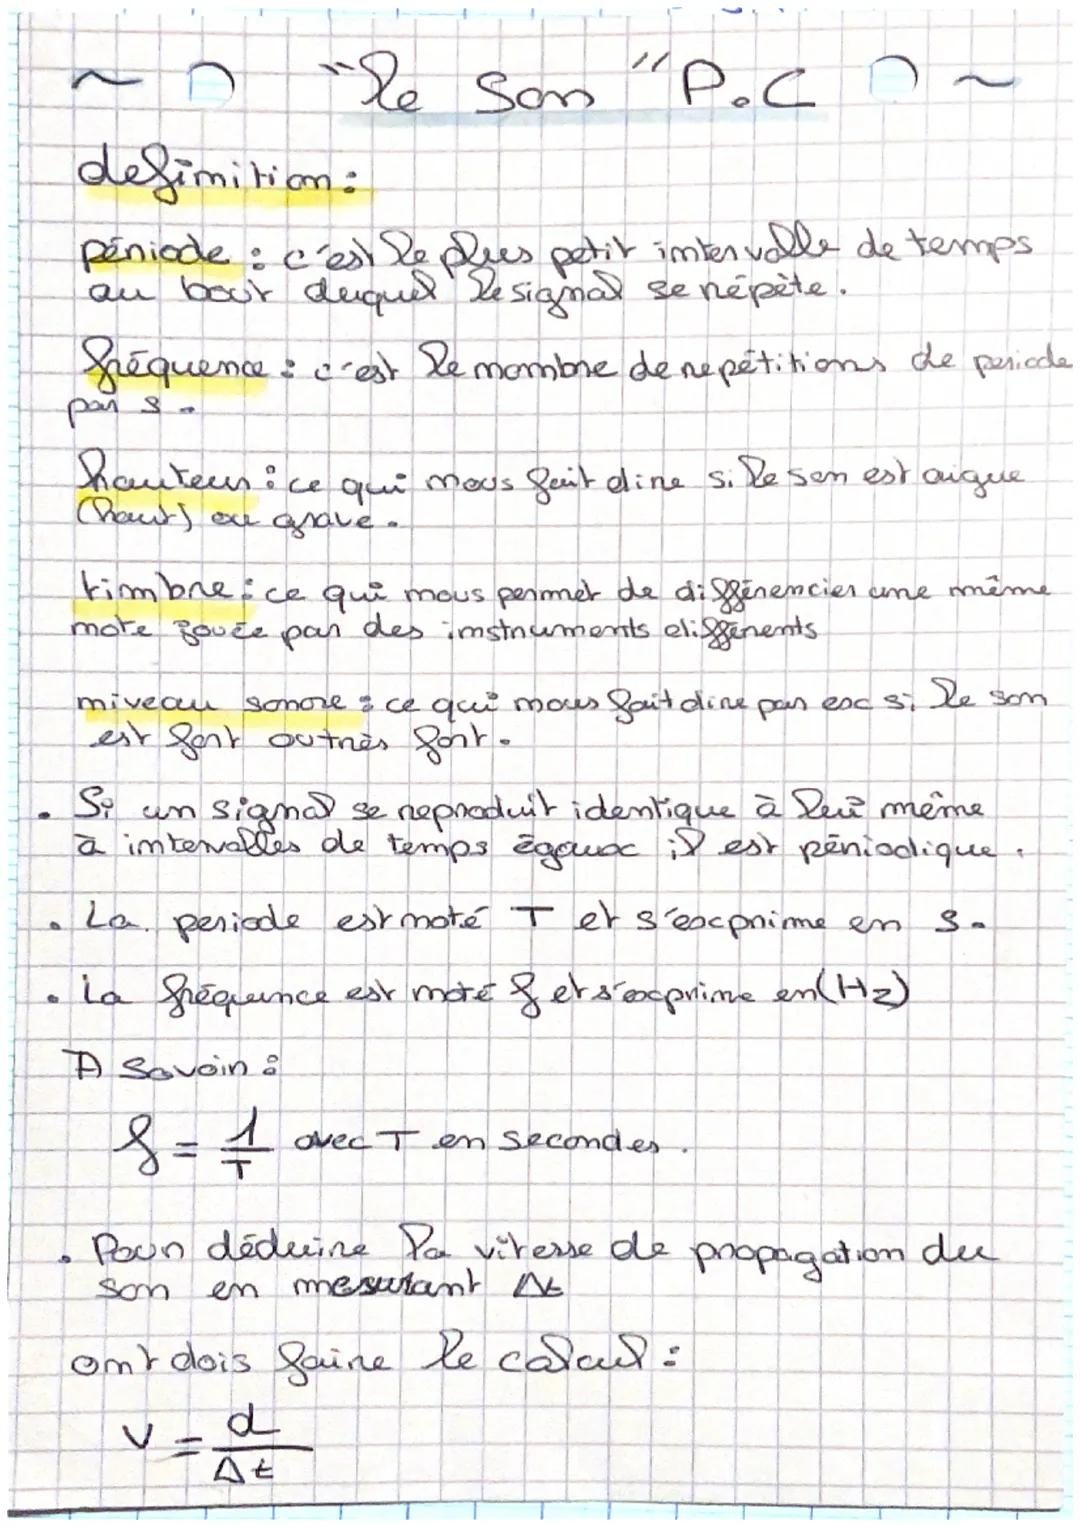 ~ "le son" P.C ~
definition :
période : c'est le plus petit intervalle de temps
au bout duquel le signal se répète.
fréquence : c'est le nombre de repétitions de periode
par s.
hauteur : ce qui nous fait dire si le son est aigue
(haut) ou grave.
timbre : ce qui nous permet de différencier une même
note jouée par des instruments différents
niveau sonore : ce qui nous fait dire par ex si le son
est fort ou très fort.
• Si un signal se reproduit identique à lui même
à intervalles de temps égaux il est périodique.
• La periode est noté T et s'exprime en s.
• La fréquence est noté f et s'exprime en (Hz)
A savoir :
f = 1/T avec T en secondes.
• Pour déduire la vitesse de propagation du
son en mesurant Δt
ont dois faire le calcul :
v = d/Δt